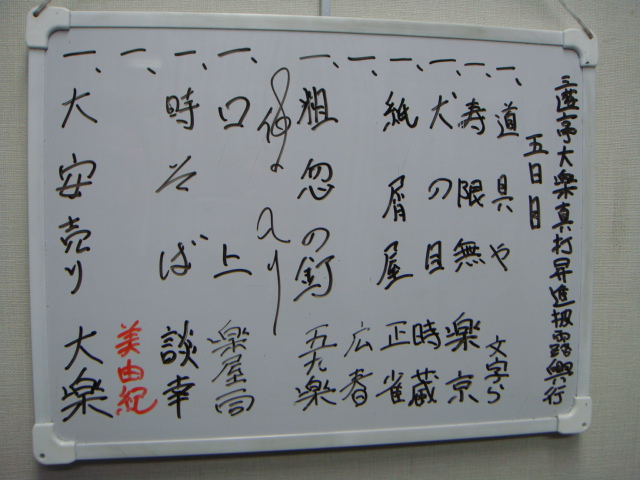 三遊亭大楽真打昇進披露興行
五日目
一、道具や 文字ら
一、寿限無 楽京
一、犬の目 時蔵
一、紙屑屋 正雀
一、広春
一、粗忽の釘 五九楽
仲の入り
一、口上 楽屋同
一、時そば 談幸
一、美由紀
一、大安売り 大楽